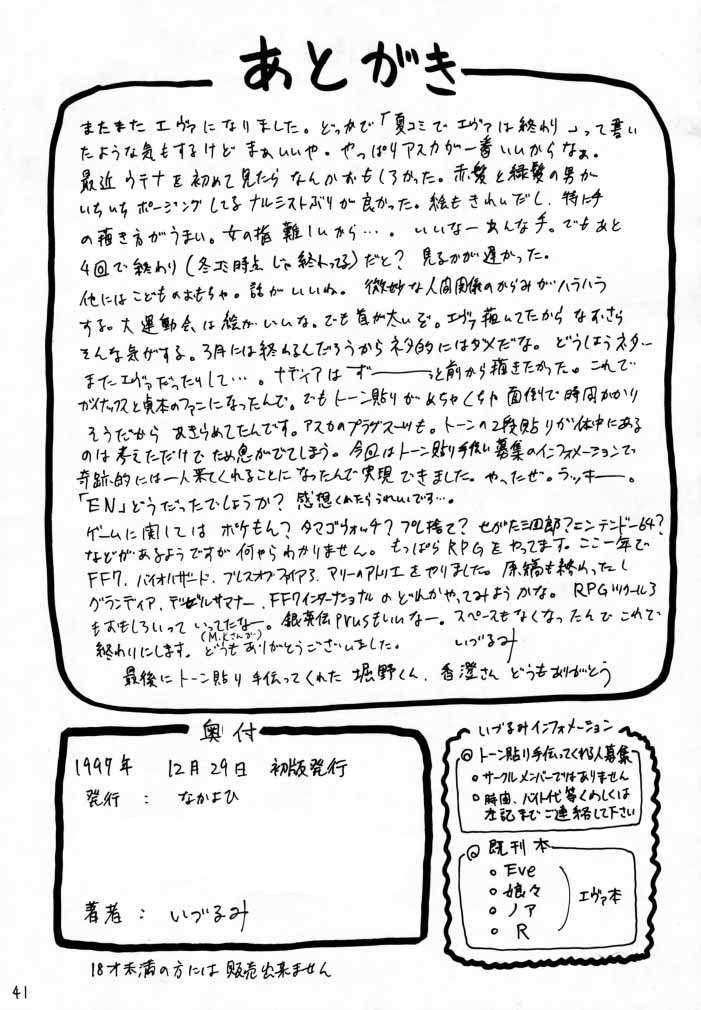 あとがき
またまた エヴァになりました。どっかで「夏コミで エヴァは終わり」って書い
たような気もするけど まぁいいや。やっぱりアスカが一番いいからなぁ。
最近 ウテナを初めて見たら なんかおもしろかった。赤髪と緑髪の男が
いちいち ポージングしてる ナルシストぶりが良かった。絵もきれいだし、特に手
の描き方がうまい。女の指 難しいから…。 いいなーあんな手。でもあと
4回で終わり(冬コミ時点じゃ終わってる)だと? 見るのが遅かった。
他にはこどものおもちゃ。話がいいね。 微妙な人間関係のからみがハラハラ
する。大運動会は絵がいいな。でも首が太いぞ。エヴァ描いてたからなおさら
そんな気がする。3月には終わるんだろうからネタ的にはダメだな。どうしようネタ…
またエヴァだったりして…。ナディアは ずーーーっと前から描きたかった。これで
ガイナックスと貞本のファンになったんで。でもトーン貼りが めちゃくちゃ 面倒で時間かかり
そうだから あきらめてたんです。アスカのプラグスーツも。トーンの2段貼りが体中にある
のは考えただけで ため息がでてしまう。今回はトーン貼り手伝い募集のインフォメーションで
奇跡的には一人来てくれることに なったんで実現できました。やったぜ。ラッキー。
「EN」どうだったでしょうか? 感想くれたらうれしいです…。
ゲームに関しては ポケもん? タマゴウォッチ? プレ捨て? せがた三四郎? ニンテンドー64?
などがあるようですが 何やらわかりません。もっぱら RPGをやってます。ここ一年で
FF7、バイオハザード、ブレスオブファイア3、マリーのアトリエをやりました。原稿も終わったし
グランディア、デビルサマナー、FF7インターナショナル のどれかやってみようかな。 RPGツクール3
もおもしろいって いってたなー。銀英伝Plusもいいなー。スペースもなくなったんで これで
(M.Kさんが)
終わりにします。 どうもありがとうございました。 いづるみ
最後にトーン貼り 手伝ってくれた 堀野くん、香澄さん どうもありがとう
奥付
1997年 12月29日 初版発行
発行 : なかよひ
著者 : いづるみ
18才未満の方には 販売出来ません
いづるみインフォメーション
◎トーン貼り手伝ってくれる人募集
○サークルメンバーではありません
○時間、バイト代等くわしくは
左記まで ご連絡して下さい
◎既刊本
○Eve
○娘々
○ノア
○R
エヴァ本
41